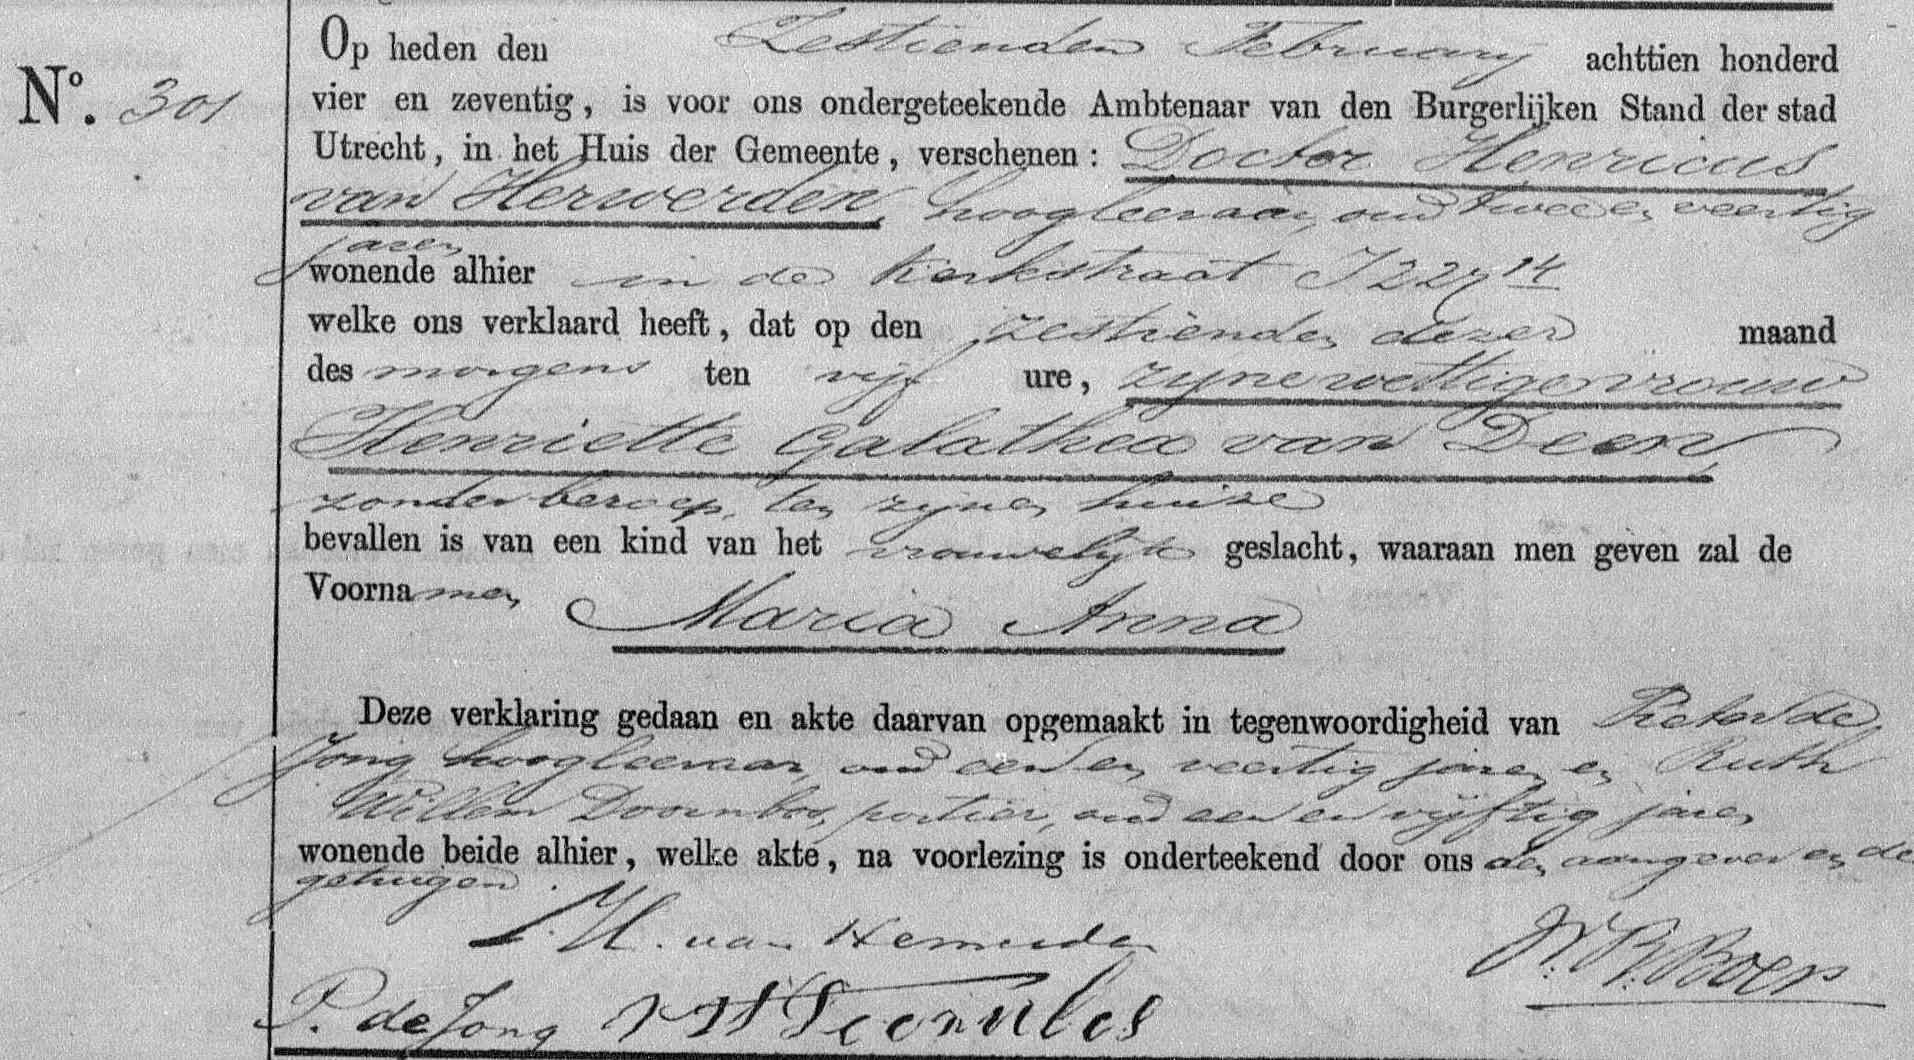 Op heden den Zestienden February achttien honderd
No. 301
vier en zeventig, is voor ons ondergeteekende Ambtenaar van den Burgerlijken Stand der stad
Utrecht, in het Huis der Gemeente, verschenen: Doctor Henricus
van Herwerden, hoogleeraar, oud twee en veertig
jaren
wonende alhier in de Kerkstraat
welke ons verklaard heeft, dat op den zestienden dezer maand
des morgens ten vijf ure, zijne wettige vrouw
Henriette Galathea van Deen,
zonder beroep, ten zijnen huize
bevallen is van een kind van het vrouwelijk geslacht, waaraan men geven zal de
Voornamen Maria Anna
Deze verklaring gedaan en akte daarvan opgemaakt in tegenwoordigheid van Pieter de
Jong, hoogleeraar, oud een en veertig jaren en Ruth
Willem Doornbos, portier, oud een en vijftig jaren
wonende beide alhier, welke akte, na voorlezing is onderteekend door ons den aangever en de
getuigen.
H. van Herwerden
Boer
P. de Jong Doornbos